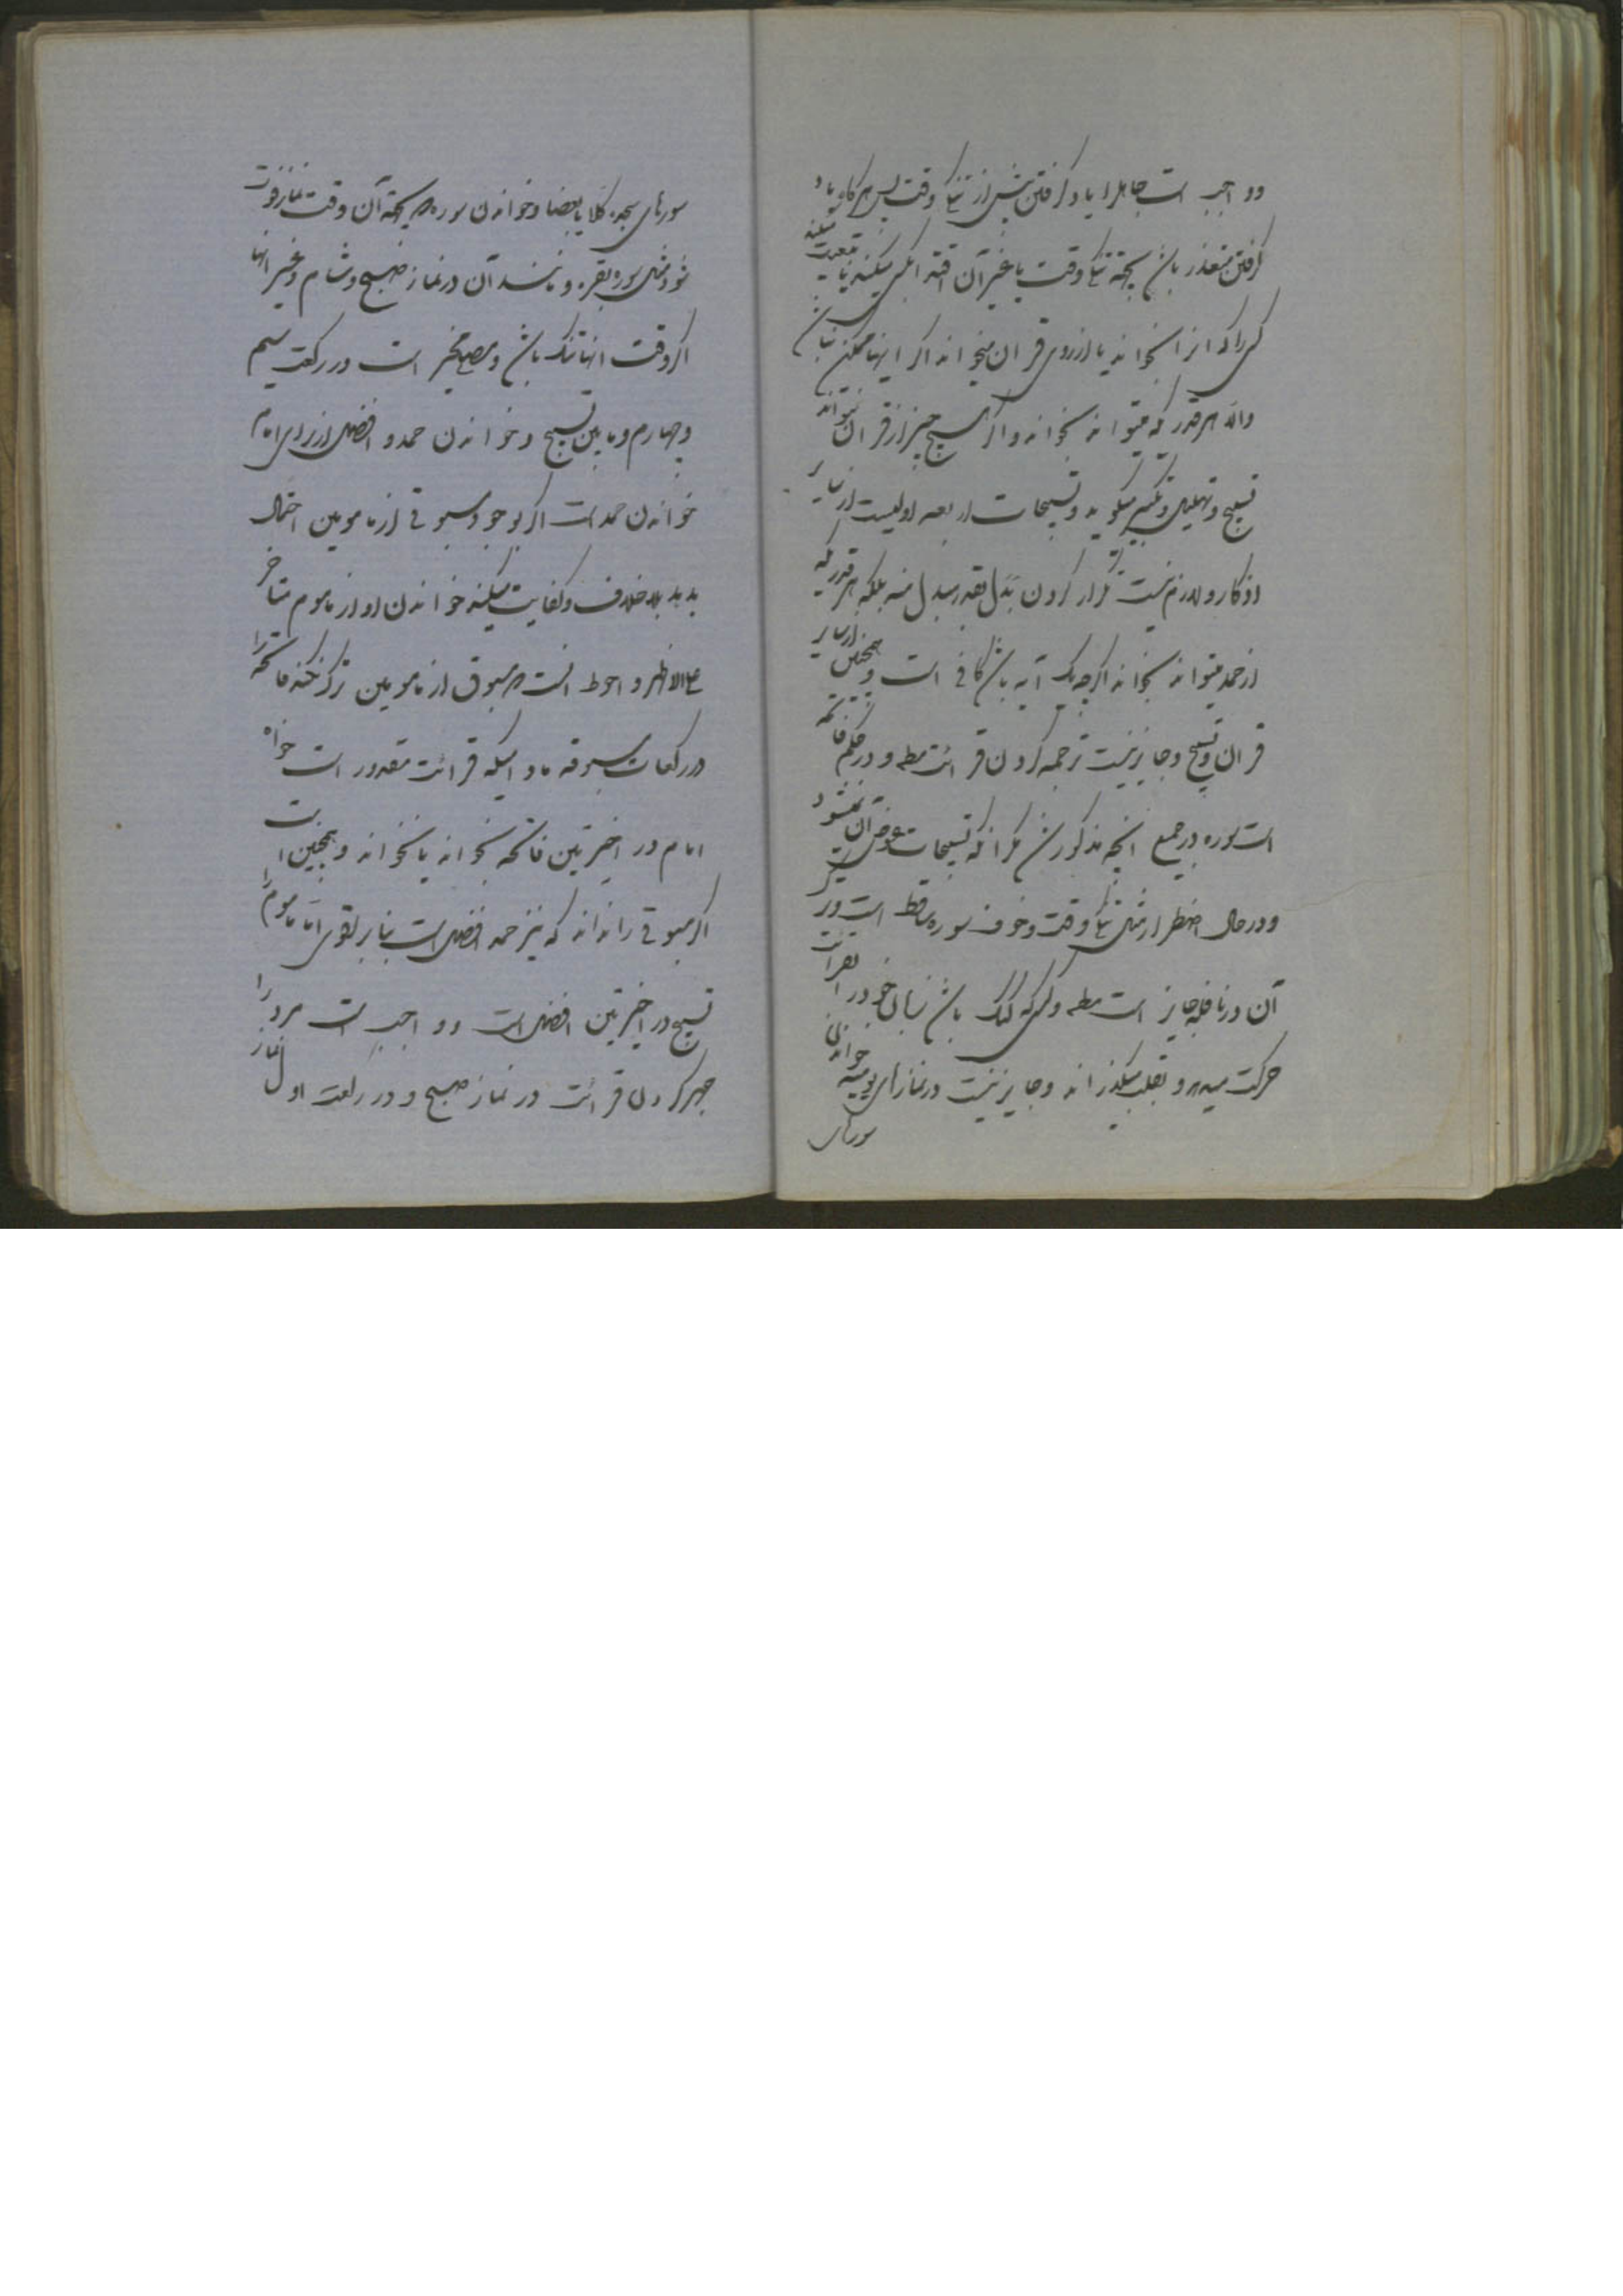 و واجب است جاهل را یاد گرفتن پیش از تنگی وقت پس هرگاه یاد
گرفتن متعذر باشد بجهة تنگی وقت یا غیر آن اقتدا میکند یا متابعت میکند
کسی را که انرا بخواند یا از روی قران میخواند اگر اینها ممکن نباشد
والا هر قدر که میتواند بخواند و اگر هیچ چیز از قران نتواند
تسبیح و تهلیل و تکبیر میگوید و تسبیحات اربعه اولیست از سایر
اذکار و لازم نیست تکرار کردن بدل بقدر مبدل منه بلکه هر قدر که
از حمد میتواند بخواند اگرچه یک آیه باشد کافی است و همچنین از سایر
قران و تسبیح و جایز نیست ترجمه کردن قرائت مطه و در حکم فاتحه
است سوره در جمیع انچه مذکور شد مگر انکه تسبیحات عوض آن نمیشود
و در حال اضطرار مثل تنگی وقت و خوف سوره ساقط است و در
آن در نافله جایز است مطه و کسی که لال باشد زبان خود را بقرائت
حرکت میدهد و بقلب میگذراند و جایز نیست در نمازهای یومیه خواندن
سورهای
سورهای سجده کلا یا بعضا و خواندن سوره که بجهة آن وقت نماز فوت
شود مثل سوره بقره و مانند آن در نماز صبح و شام و غیر انها
اگر وقت انها تنگ باشد و مصلی مخیر است در رکعت سیم
و چهارم و مابین تسبیح و خواندن حمد و افضل از برای امام
خواندن حمد است اگر بوجود مسبوقی از مامومین احتمال
بدهد بلا خلاف و کفایت میکند خواندن او از ماموم متاخر
علی الاظهر و احوط انست که مسبوق از مامومین ترک نکند فاتحه را
در رکعات مسبوقه مادامیکه قرائت مقدور است خواه
امام در اخیرتین فاتحه بخواند یا نخواند و همچنین است
اگر مسبوقی را نداند که نیز حمد افضل است بنابر اقوی اما ماموم را
تسبیح در اخیرتین افضل است و واجب است مرد را
جهر کردن قرائت در نماز صبح و در رکعت اول نماز